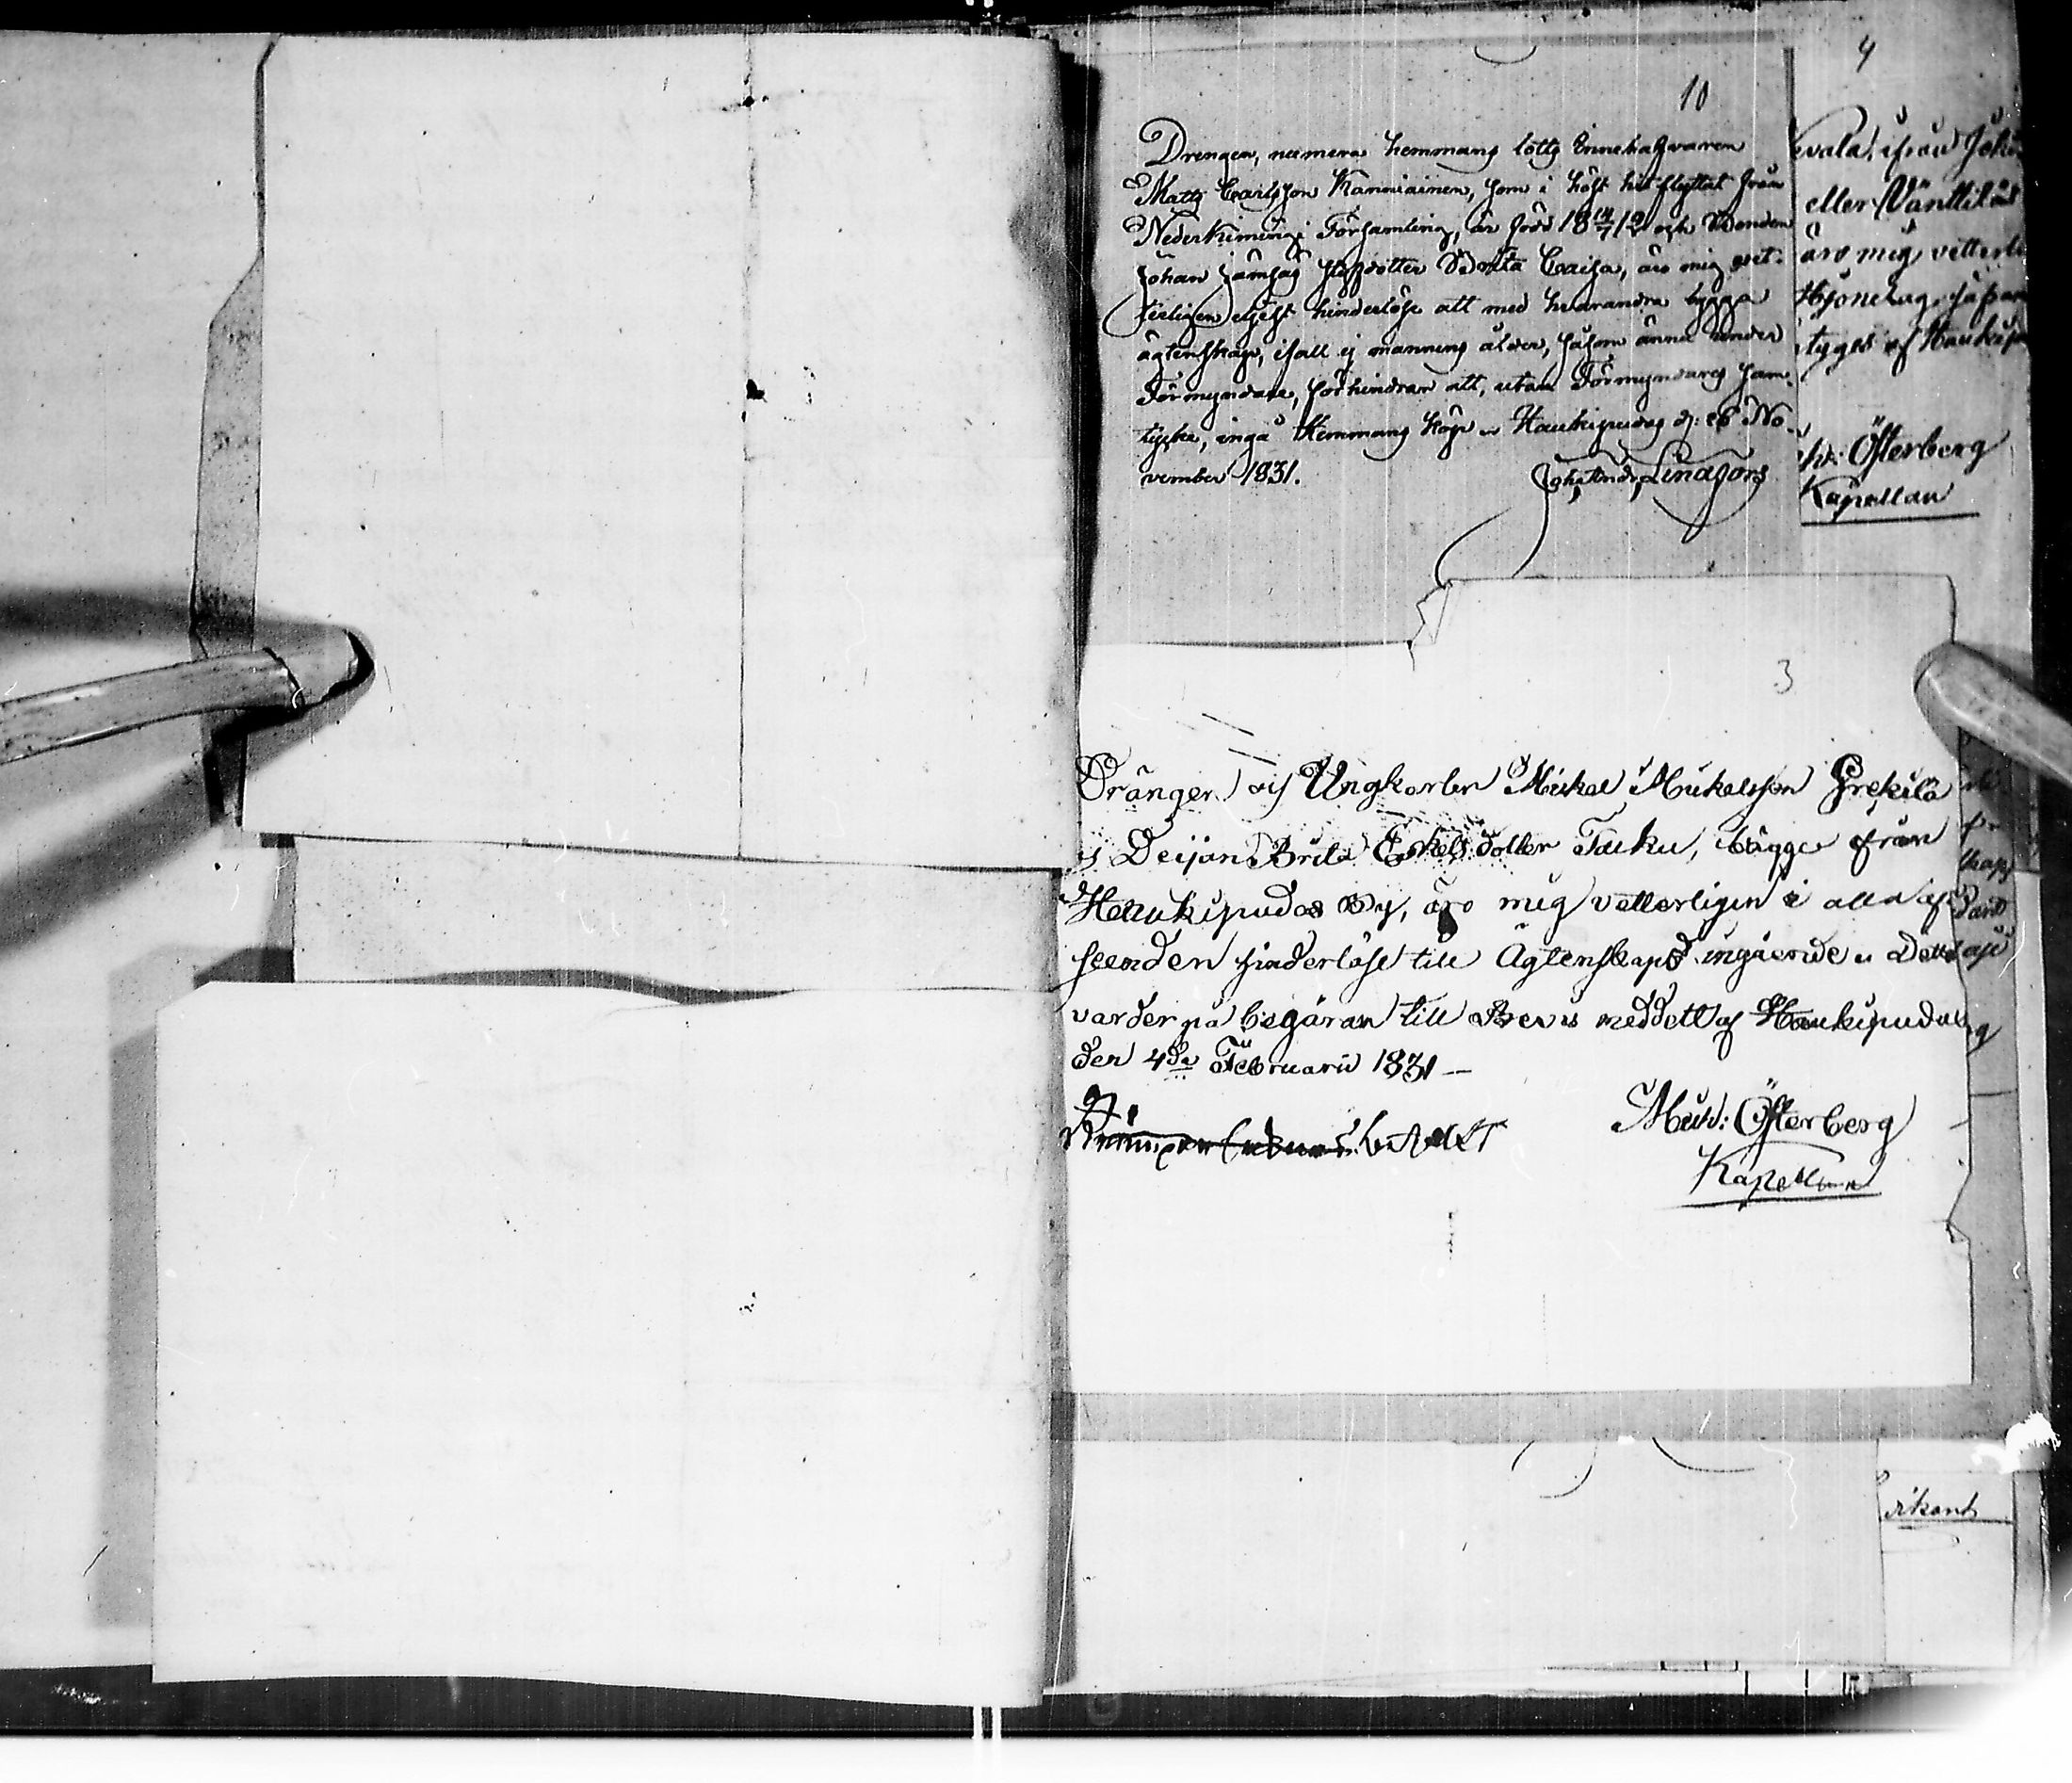 10
Drengen, numera hemmans lotts Innehafvaren
Matts Carlsson Kännäinen, som i höst hit flyttat från
Nederkimingi Församling, är född 18 14/7 12 och Bonden
Johan Jämsäs styfdotter Brita Caisa, äro mig vet-
terligen eljest hinderlöse att med hvarandra bygga
ägtenskap, ifall ej mannens ålder, såsom ännu under
Förmyndare, förhindrar att, utan Förmyndares sam-
tycke, ingå Hemmans köp. Haukipudas d: 26 No-
vember 1831.
Joh. Andr. Lindfors
4
eller Vänttilä
äro mig vetterli
Hjonelag
tyges af Haukipu
Österberg
Kapellan
3
Drängen och Ungkarlen Mickel Mickelsson Grekilä
Deijan Brita Erkelsdotter Tauku, bägge från
Haukipudas By, äro mig vetterligen i alla af-
seenden hinderlöse till Ägtenskaps ingående. Detta
varder på begäran till Bevis meddelt af Haukipudas
den 4de Februarii 1831 —
Mich: Österberg
Kapellan